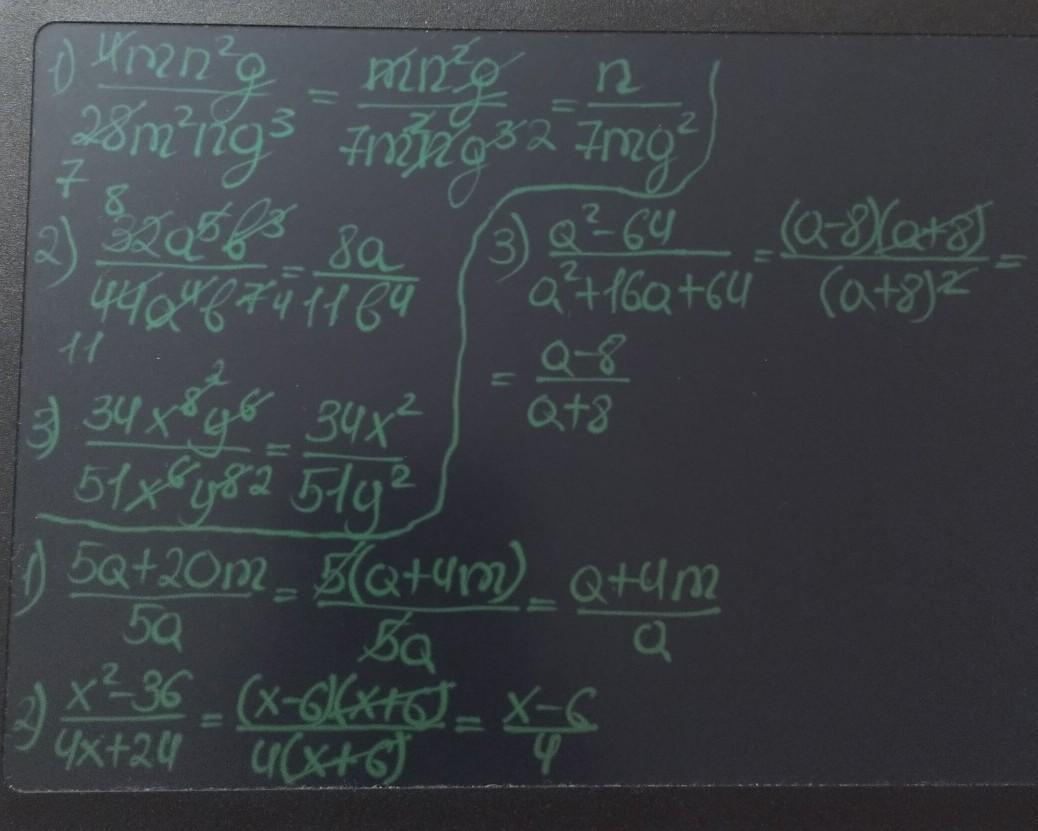 1) 4mn²g / 28m²ng³ = mn²g / 7m²ng³ 2 = n / 7mg²
7
8
2) 32a⁵b³ / 44a⁴b⁷ 4 = 8a / 11b⁴
11
2
3) 34x⁸y⁶ / 51x⁶y⁸ 2 = 34x² / 51y²
3) a²-64 / a²+16a+64 = (a-8)(a+8) / (a+8)² =
= a-8 / a+8
1) 5a+20m / 5a = 5(a+4m) / 5a = a+4m / a
2) x²-36 / 4x+24 = (x-6)(x+6) / 4(x+6) = x-6 / 4